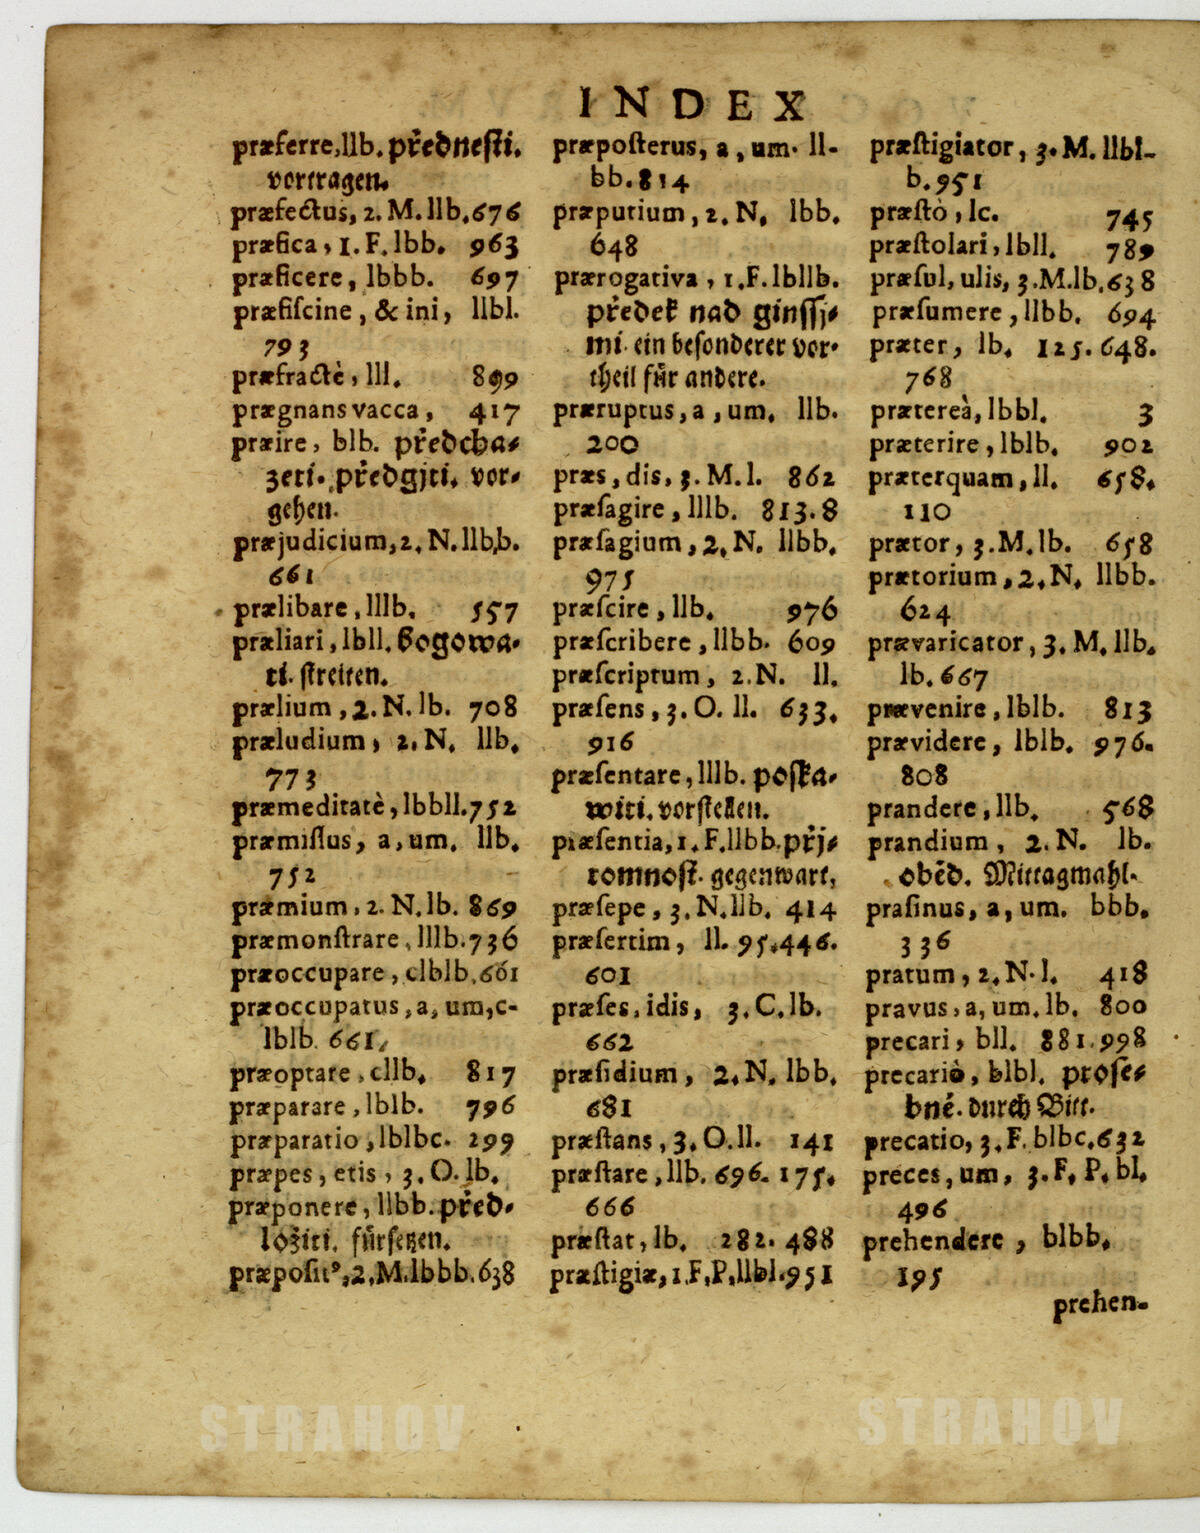 INDEX
præferre, llb. přednesti.
vortragen.
præfectus, 2. M. llb. 676
præfica, 1. F. lbb. 963
præficere, lbbb. 697
præfiſcine, & ini, llbl.
793
præfractè, lll. 899
prægnans vacca, 417
præire, blb. předcha-
zeti. předgjti. vor-
gehen.
præjudicium, 2. N. llb,b.
661
prælibare, lllb. 557
præliari, lbll. bogowa-
ti. ſtreiten.
prælium, 2. N. lb. 708
præludium, 2. N. llb.
773
præmeditatè, lbbll. 752
præmiſſus, a, um. llb.
752
præmium, 2. N. lb. 869
præmonſtrare, lllb. 736
præoccupare, clblb. 661
præoccupatus, a, um, c-
lblb. 661.
præoptare, cllb. 817
præparare, lblb. 796
præparatio, lblbc. 299
præpes, etis, 3. O. lb.
præponere, llbb. před-
ložiti. fürſetzen.
præpoſitꝰ, 2, M. lbbb. 638
præpoſterus, a, um. ll-
bb. 814
præputium, 2. N. lbb.
648
prærogativa, 1. F. lbllb.
předek nad ginſſj-
mi. ein beſonderer vor-
theil für andere.
præruptus, a, um. llb.
200
præs, dis, 3. M. l. 862
præſagire, lllb. 813. 8
præſagium, 2. N. llbb.
975
præſcire, llb. 976
præſcribere, llbb. 609
præſcriptum, 2. N. ll.
præſens, 3. O. ll. 633.
916
præſentare, lllb. poſta-
witi. vorſtellen.
præſentia, 1. F. llbb. přj-
tomnoſt. gegenwart.
præſepe, 3. N. llb. 414
præſertim, ll. 95. 446.
601
præſes, idis, 3. C. lb.
662
præſidium, 2. N. lbb.
681
præſtans, 3. O. ll. 141
præſtare, llb. 696. 175.
666
præſtat, lb. 282. 488
præſtigiæ, 1. F. P. llbl. 951
præſtigiator, 3. M. llbl-
b. 951
præſtò, lc. 745
præſtolari, lbll. 789
præſul, ulis, 3. M. lb. 638
præſumere, llbb. 694
præter, lb. 125. 648.
768
prætereà, lbbl. 3
præterire, lblb. 902
præterquam, ll. 658.
110
prætor, 3. M. lb. 658
prætorium, 2. N. llbb.
624
prævaricator, 3. M. llb.
lb. 667
prævenire, lblb. 813
prævidere, lblb. 976.
808
prandere, llb. 568
prandium, 2. N. lb.
oběd. Mittagmahl.
praſinus, a, um. bbb.
336
pratum, 2. N. l. 418
pravus, a, um. lb. 800
precari, bll. 881. 998
precariò, blbl. proſe-
bné. durch Bitt.
precatio, 3. F. blbc. 632
preces, um, 3. F. P. bl.
496
prehendere, blbb.
195
prehen-
STRAHOV STRAHOV